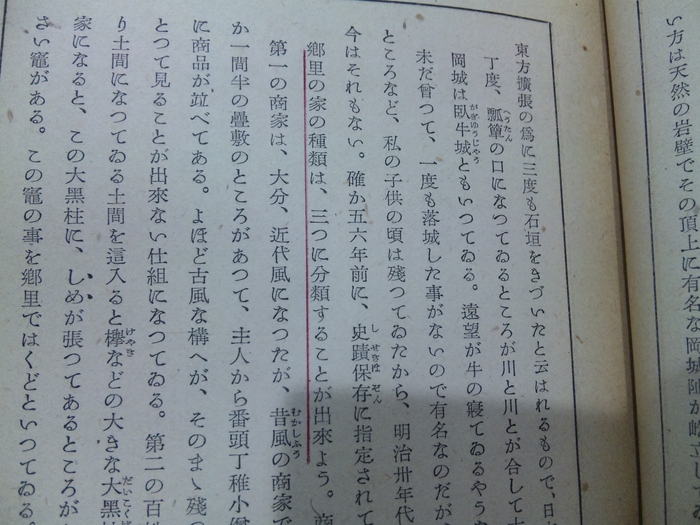 い方は天然の岩壁でその頂上に有名な岡城趾が
東方擴張の爲に三度も石垣をきづいたと云はれるもので、日
丁度、瓢簞の口になつてゐるところが川と川とが合して
岡城は臥牛城ともいつてゐる。遠望が牛の寢てゐるやう
未だ曾つて、一度も落城した事がないので有名なのだが
ところなど、私の子供の頃は殘つてゐたから、明治卅年代
今はそれもない。確か五六年前に、史蹟保存に指定されて
鄕里の家の種類は、三つに分類することが出來よう。商
第一の商家は、大分、近代風になつたが、昔風の商家で
か一間半の疊敷のところがあつて、主人から番頭丁稚小僧
に商品が竝べてある。よほど古風な構へが、そのまゝ殘つ
とつて見ることが出來ない仕組になつてゐる。第二の百姓
り土間になつてゐる土間を這入ると欅などの大きな大黑柱
家になると、この大黑柱に、しめが張つてあるところが
さい竈がある。この竈の事を鄕里ではくどといつてゐる